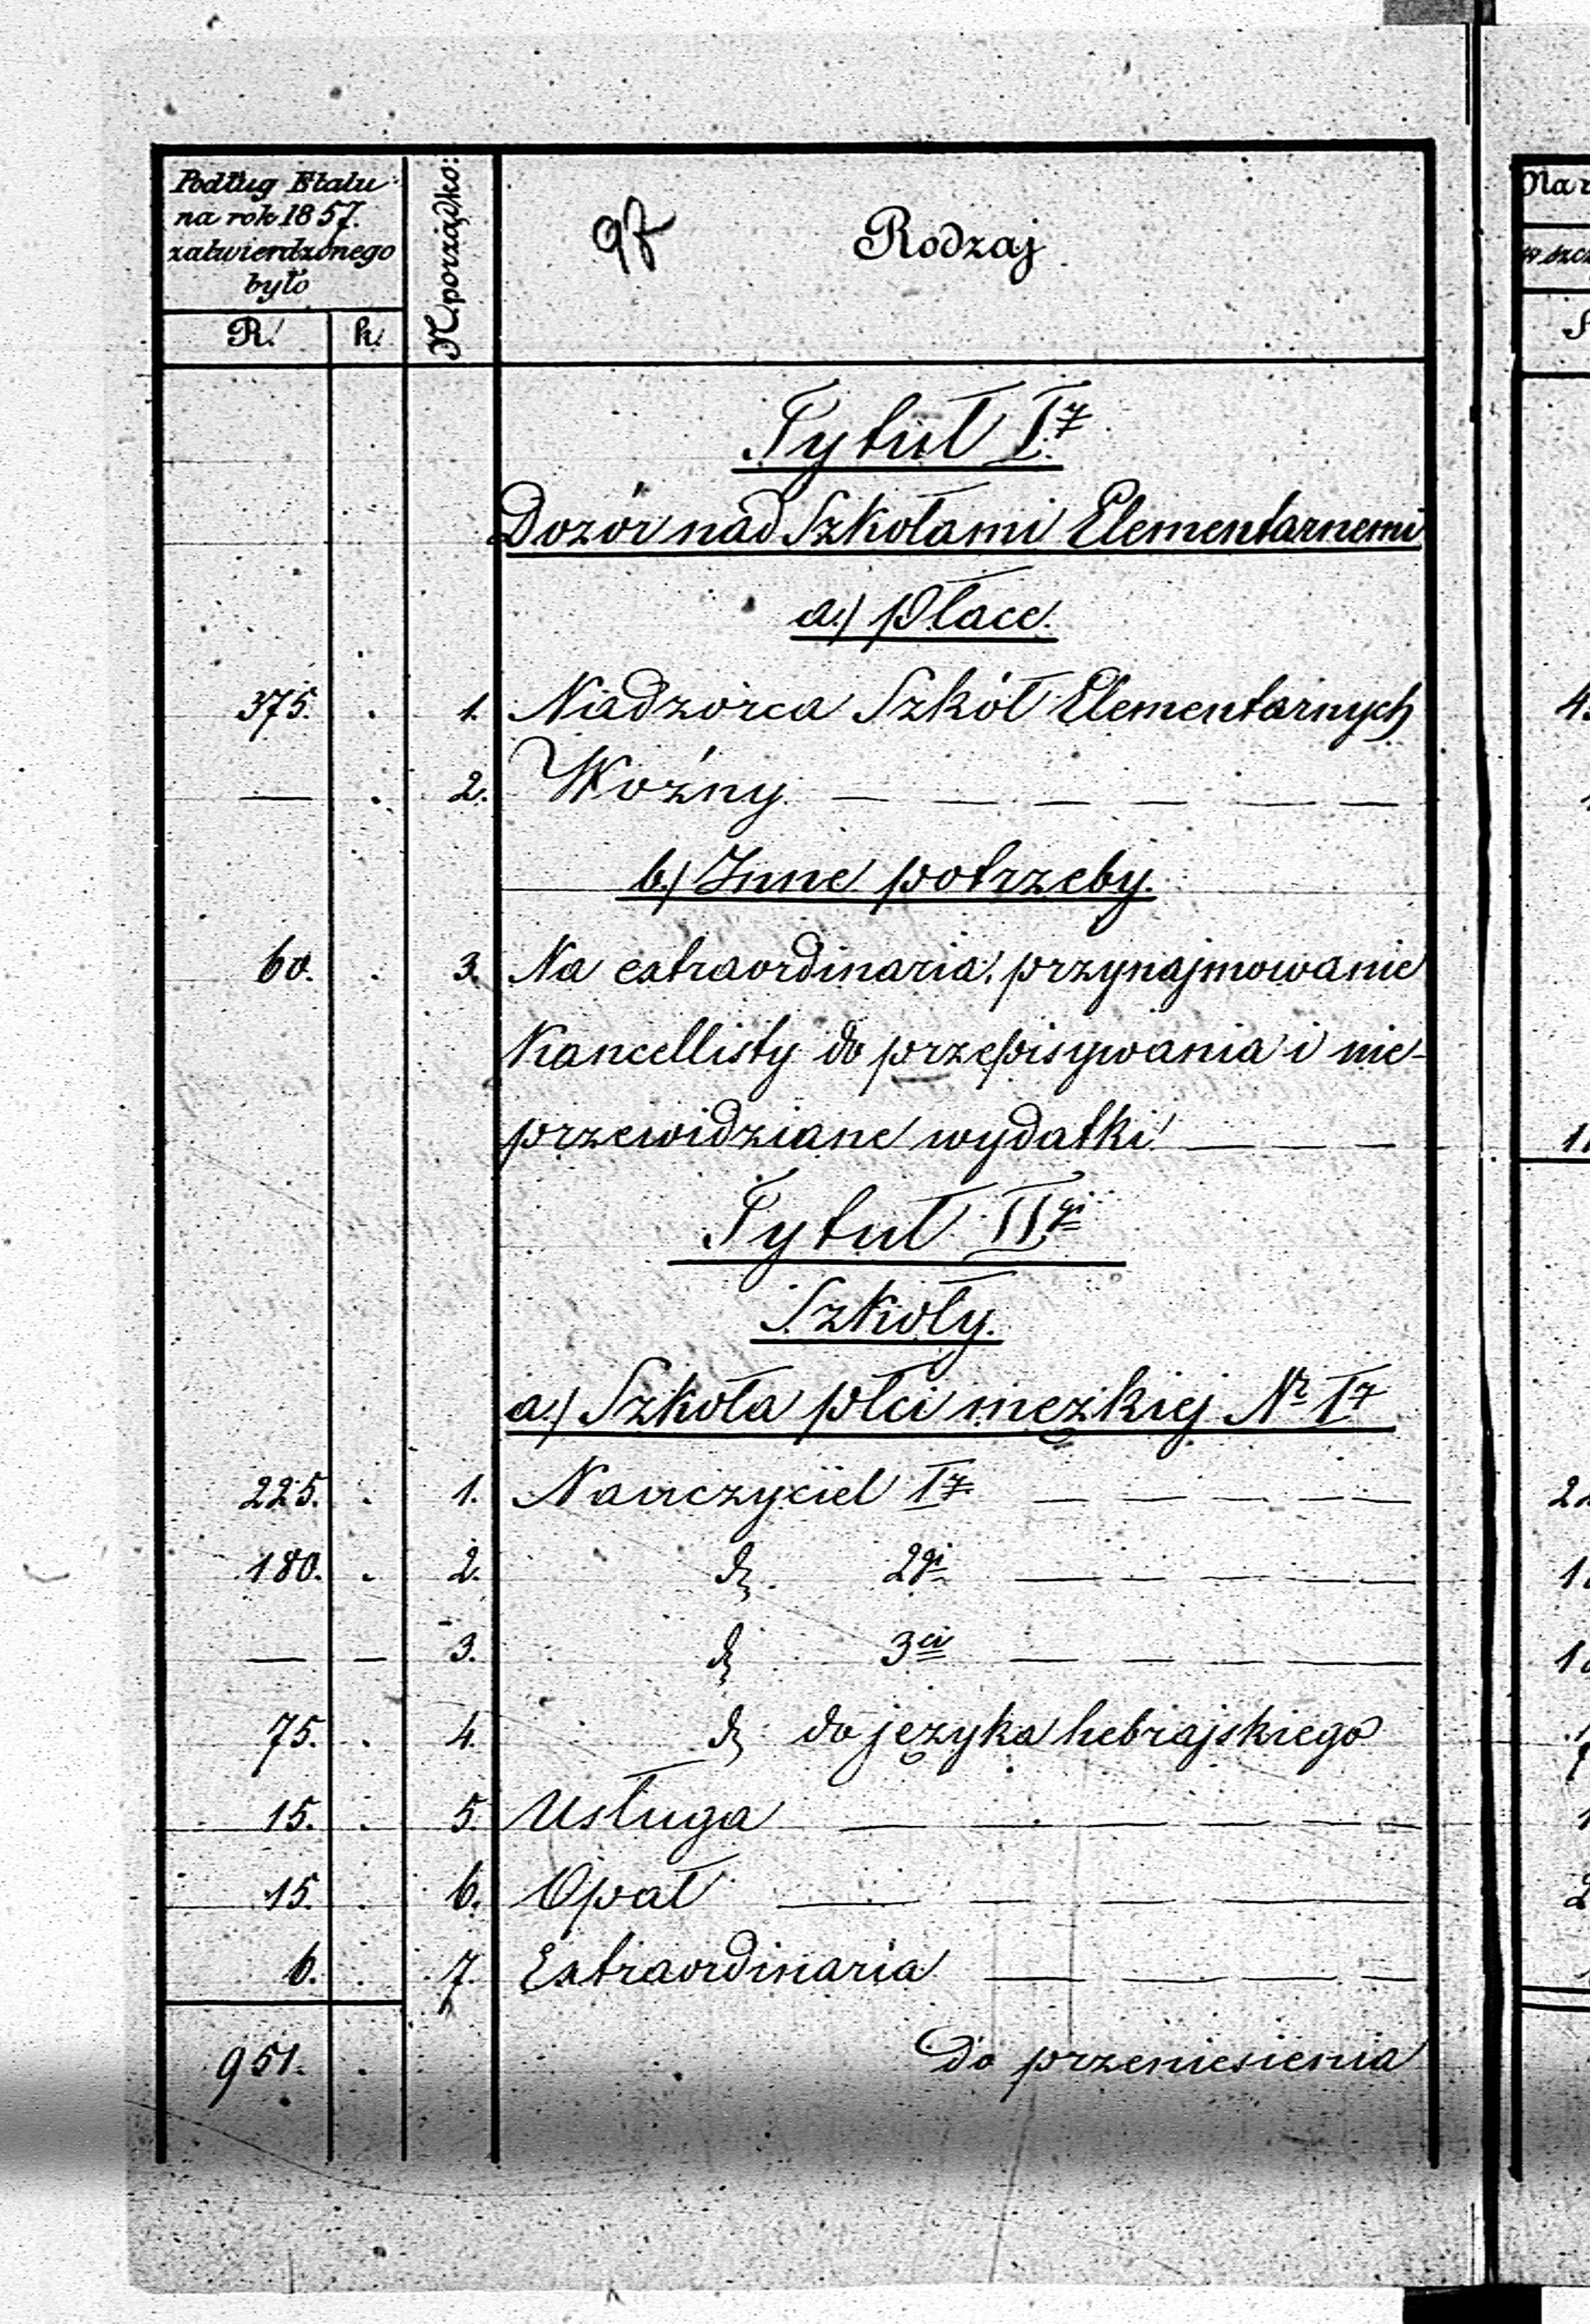 Podług Etatu
na rok 1857.
zatwierdzonego
było
R.
k.
N. porządko:
97
Rodzaj
Tytuł Iy
Dozór nad Szkołami Elementarnemi
a.) Płace.
375. . 1. Nadzorca Szkół Elementarnych
— . 2. Woźny — — — — — —
b.) Inne potrzeby.
60. . 3. Na extraordinaria, przynajmowanie
Kancellisty do przepisywania i nie-
przewidziane wydatki — — —
Tytuł IIgi
Szkoły.
a.) Szkoła płci męzkiej Nr Iy
225. . 1. Nauczyciel Iy — — — — —
180. . 2. d 2gi — — — — —
— — 3. d 3ci — — — — —
75. . 4. d do języka hebrajskiego
15. . 5 Usługa — — — — — —
15. . 6. Opał — — — —
6. . 7. Extraordinaria — — — —
951. . Do przeniesienia
Na r
w szcz